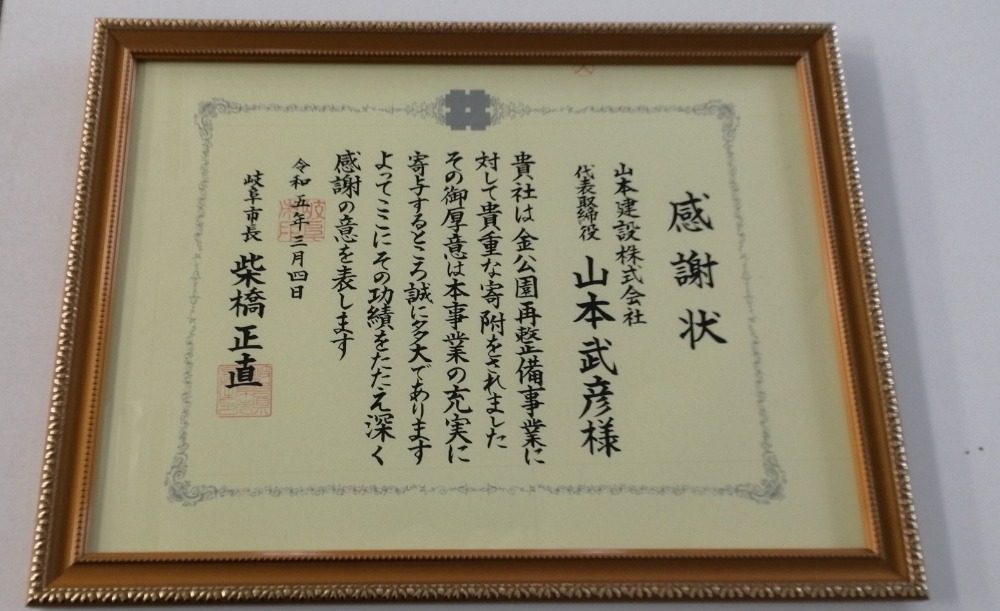 感謝状
山本建設株式会社
代表取締役 山本武彦様
貴社は金公園再整備事業に
対して貴重な寄附をされました
その御厚意は本事業の充実に
寄与するところ誠に多大であります
よってここにその功績をたたえ深く
感謝の意を表します
令和五年三月四日
岐阜市長 柴橋正直